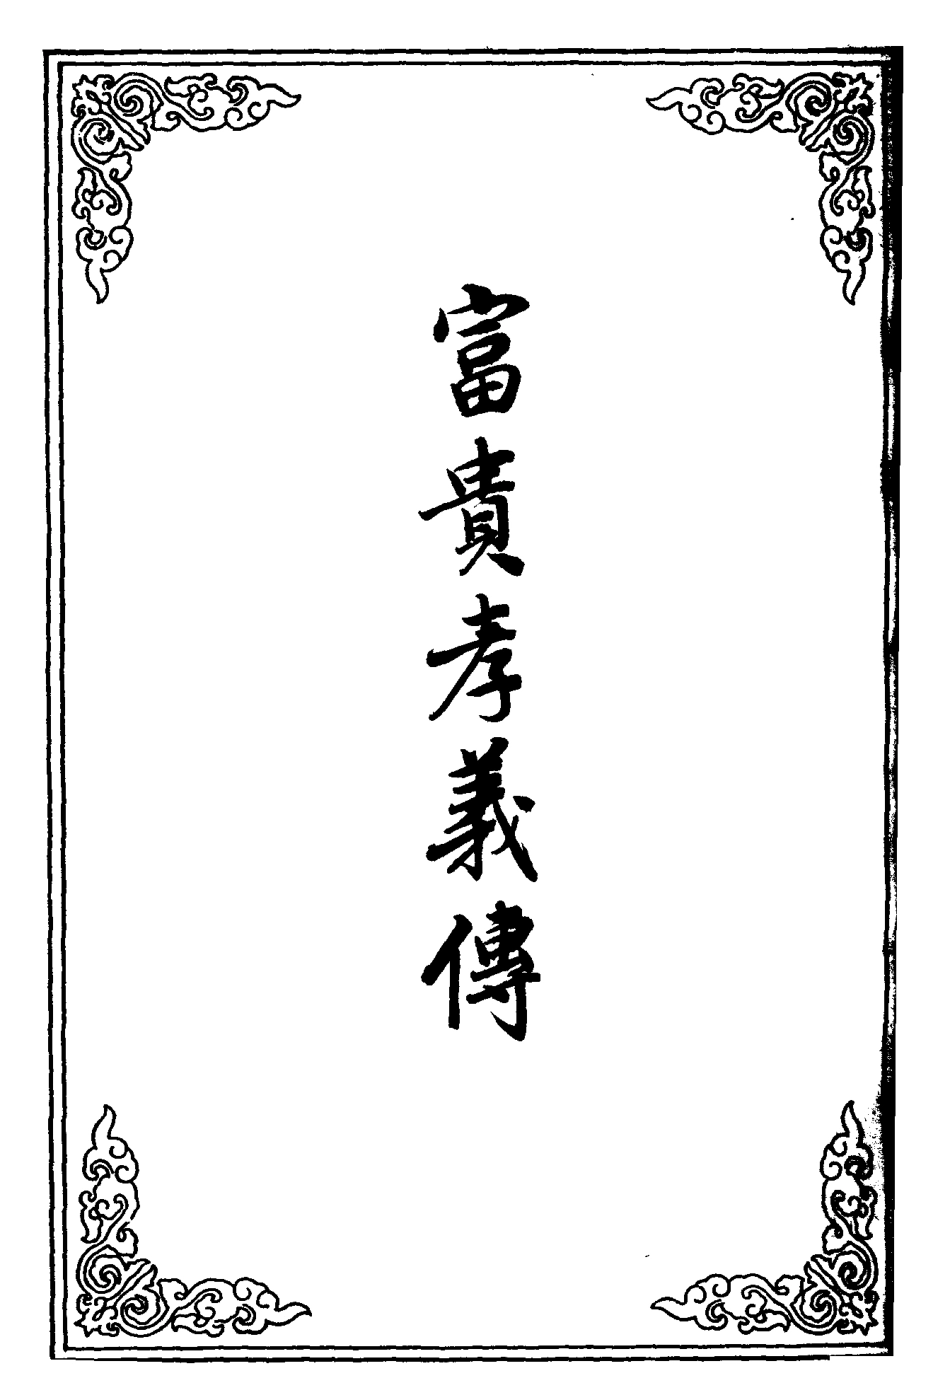 富貴孝義傳